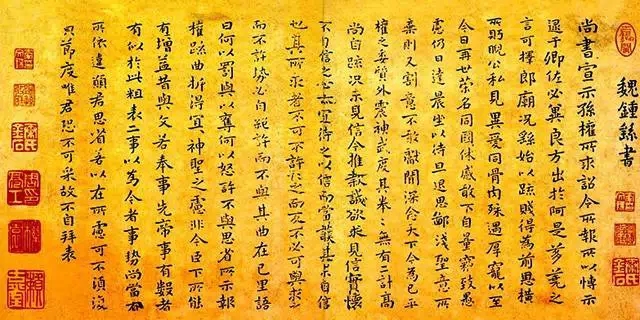 魏鍾繇書
尚書宣示孫權所求詔令所報所以博示
逮于卿佐必冀良方出於阿是芻蕘之
言可擇郎廟況繇始以疏賤得為前恩橫
所盱睨公私見異愛同骨肉殊遇厚寵以至
今日再世榮名同國休慼敢不自量竊致愚
慮仍日達晨坐以待旦退思鄙淺聖意所
棄則又割意不敢獻聞深念天下今為已平
權之委質外震神武度其拳拳無有二計高
尚自疏況未見信今推款誠欲求見信實懷
不自信之心亦宜待之以信而當護其未自信
也其所求者不可不許許之而反不必可與求之
而不許勢必自絕許而不與其曲在己里語
曰何以罰與以奪何以怒許不與思省所示報
權疏曲折得宜宜神聖之慮非今臣下所能
有增益昔與文若奉事先帝事有數者
有似於此粗表二事以為今者事勢尚當有
所依違願君思省若以在所慮可不須復
只節度唯君恐不可采故不自拜表